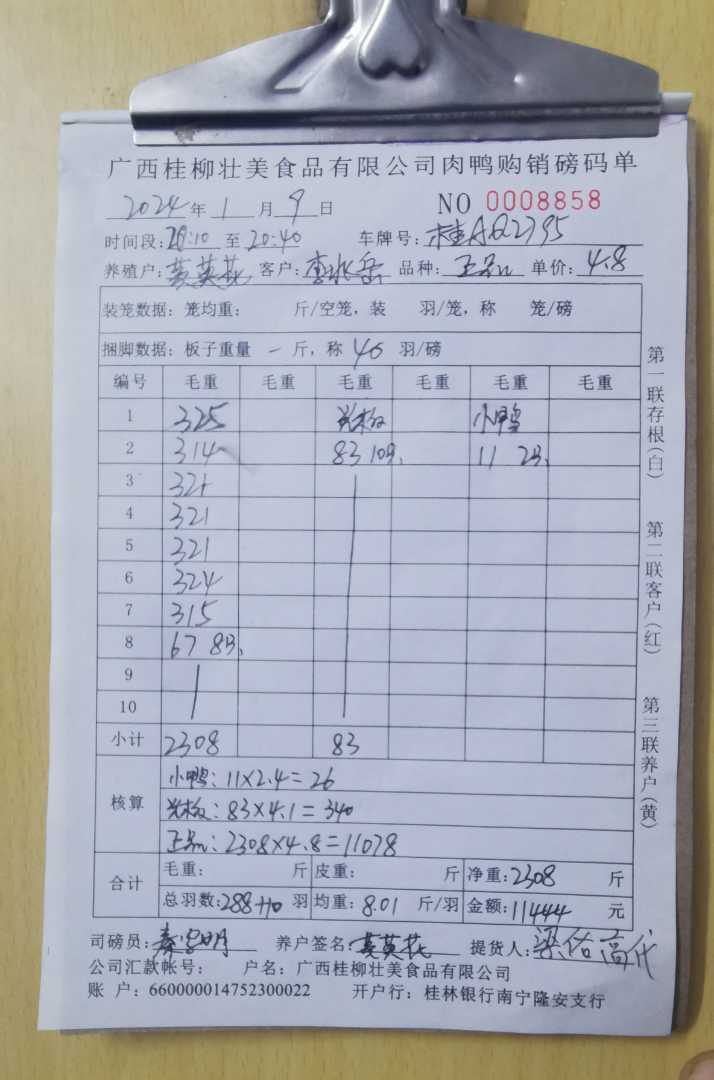 广西桂柳壮美食品有限公司肉鸭购销磅码单
2024年1月9日 NO 0008858
时间段:20:10至20:40 车牌号:桂AQ2795
养殖户:黄英花 客户:李水岳 品种:正品 单价:4.8
装笼数据:笼均重: 斤/空笼,装 羽/笼,称 笼/磅
捆脚数据:板子重量 一斤,称 40 羽/磅
编号 毛重 毛重 毛重 毛重 毛重 毛重
1 325 光板 小鸭
2 314 83 10只 11 2只
3 321
4 321
5 321
6 324
7 315
8 67 8只
9
10
小计 2308 83
核算
小鸭:11×2.4=26
光板:83×4.1=340
正品:2308×4.8=11078
合计
毛重: 斤 皮重: 斤 净重:2308 斤
总羽数:288+10 羽 均重:8.01 斤/羽 金额:11444 元
司磅员: 养户签名:黄英花 提货人:
公司汇款帐号: 户名:广西桂柳壮美食品有限公司
账 户:660000014752300022 开户行:桂林银行南宁隆安支行
第一联存根(白)
第二联客户(红)
第三联养户(黄)